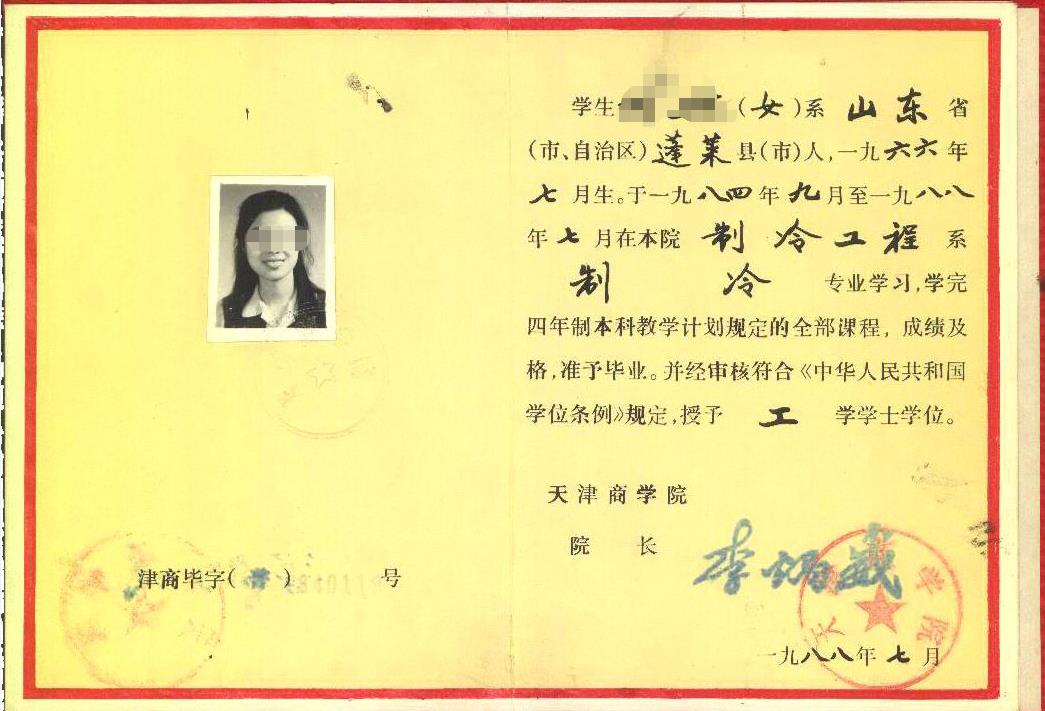 学生 (女)系 山东 省
(市、自治区) 蓬莱 县(市)人,一九六六年
七 月生。于一九八四年 九 月至一九八八
年 七 月在本院 制冷工程 系
制 冷 专业学习,学完
四年制本科教学计划规定的全部课程, 成绩及
格,准予毕业。并经审核符合《中华人民共和国
学位条例》规定,授予 工 学学士学位。
天津商学院
院 长
津商毕字( ) 号
一九八八年 七 月